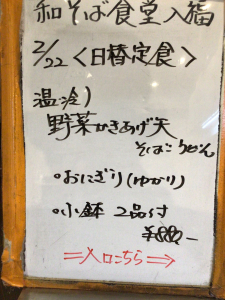 和そば食堂入福
2/22 <日替定食>
温冷)
野菜かきあげ天
そば二うどん
。おにぎり(ゆかり)
。小鉢 2品付
¥880-
⇒入口こちら⇒